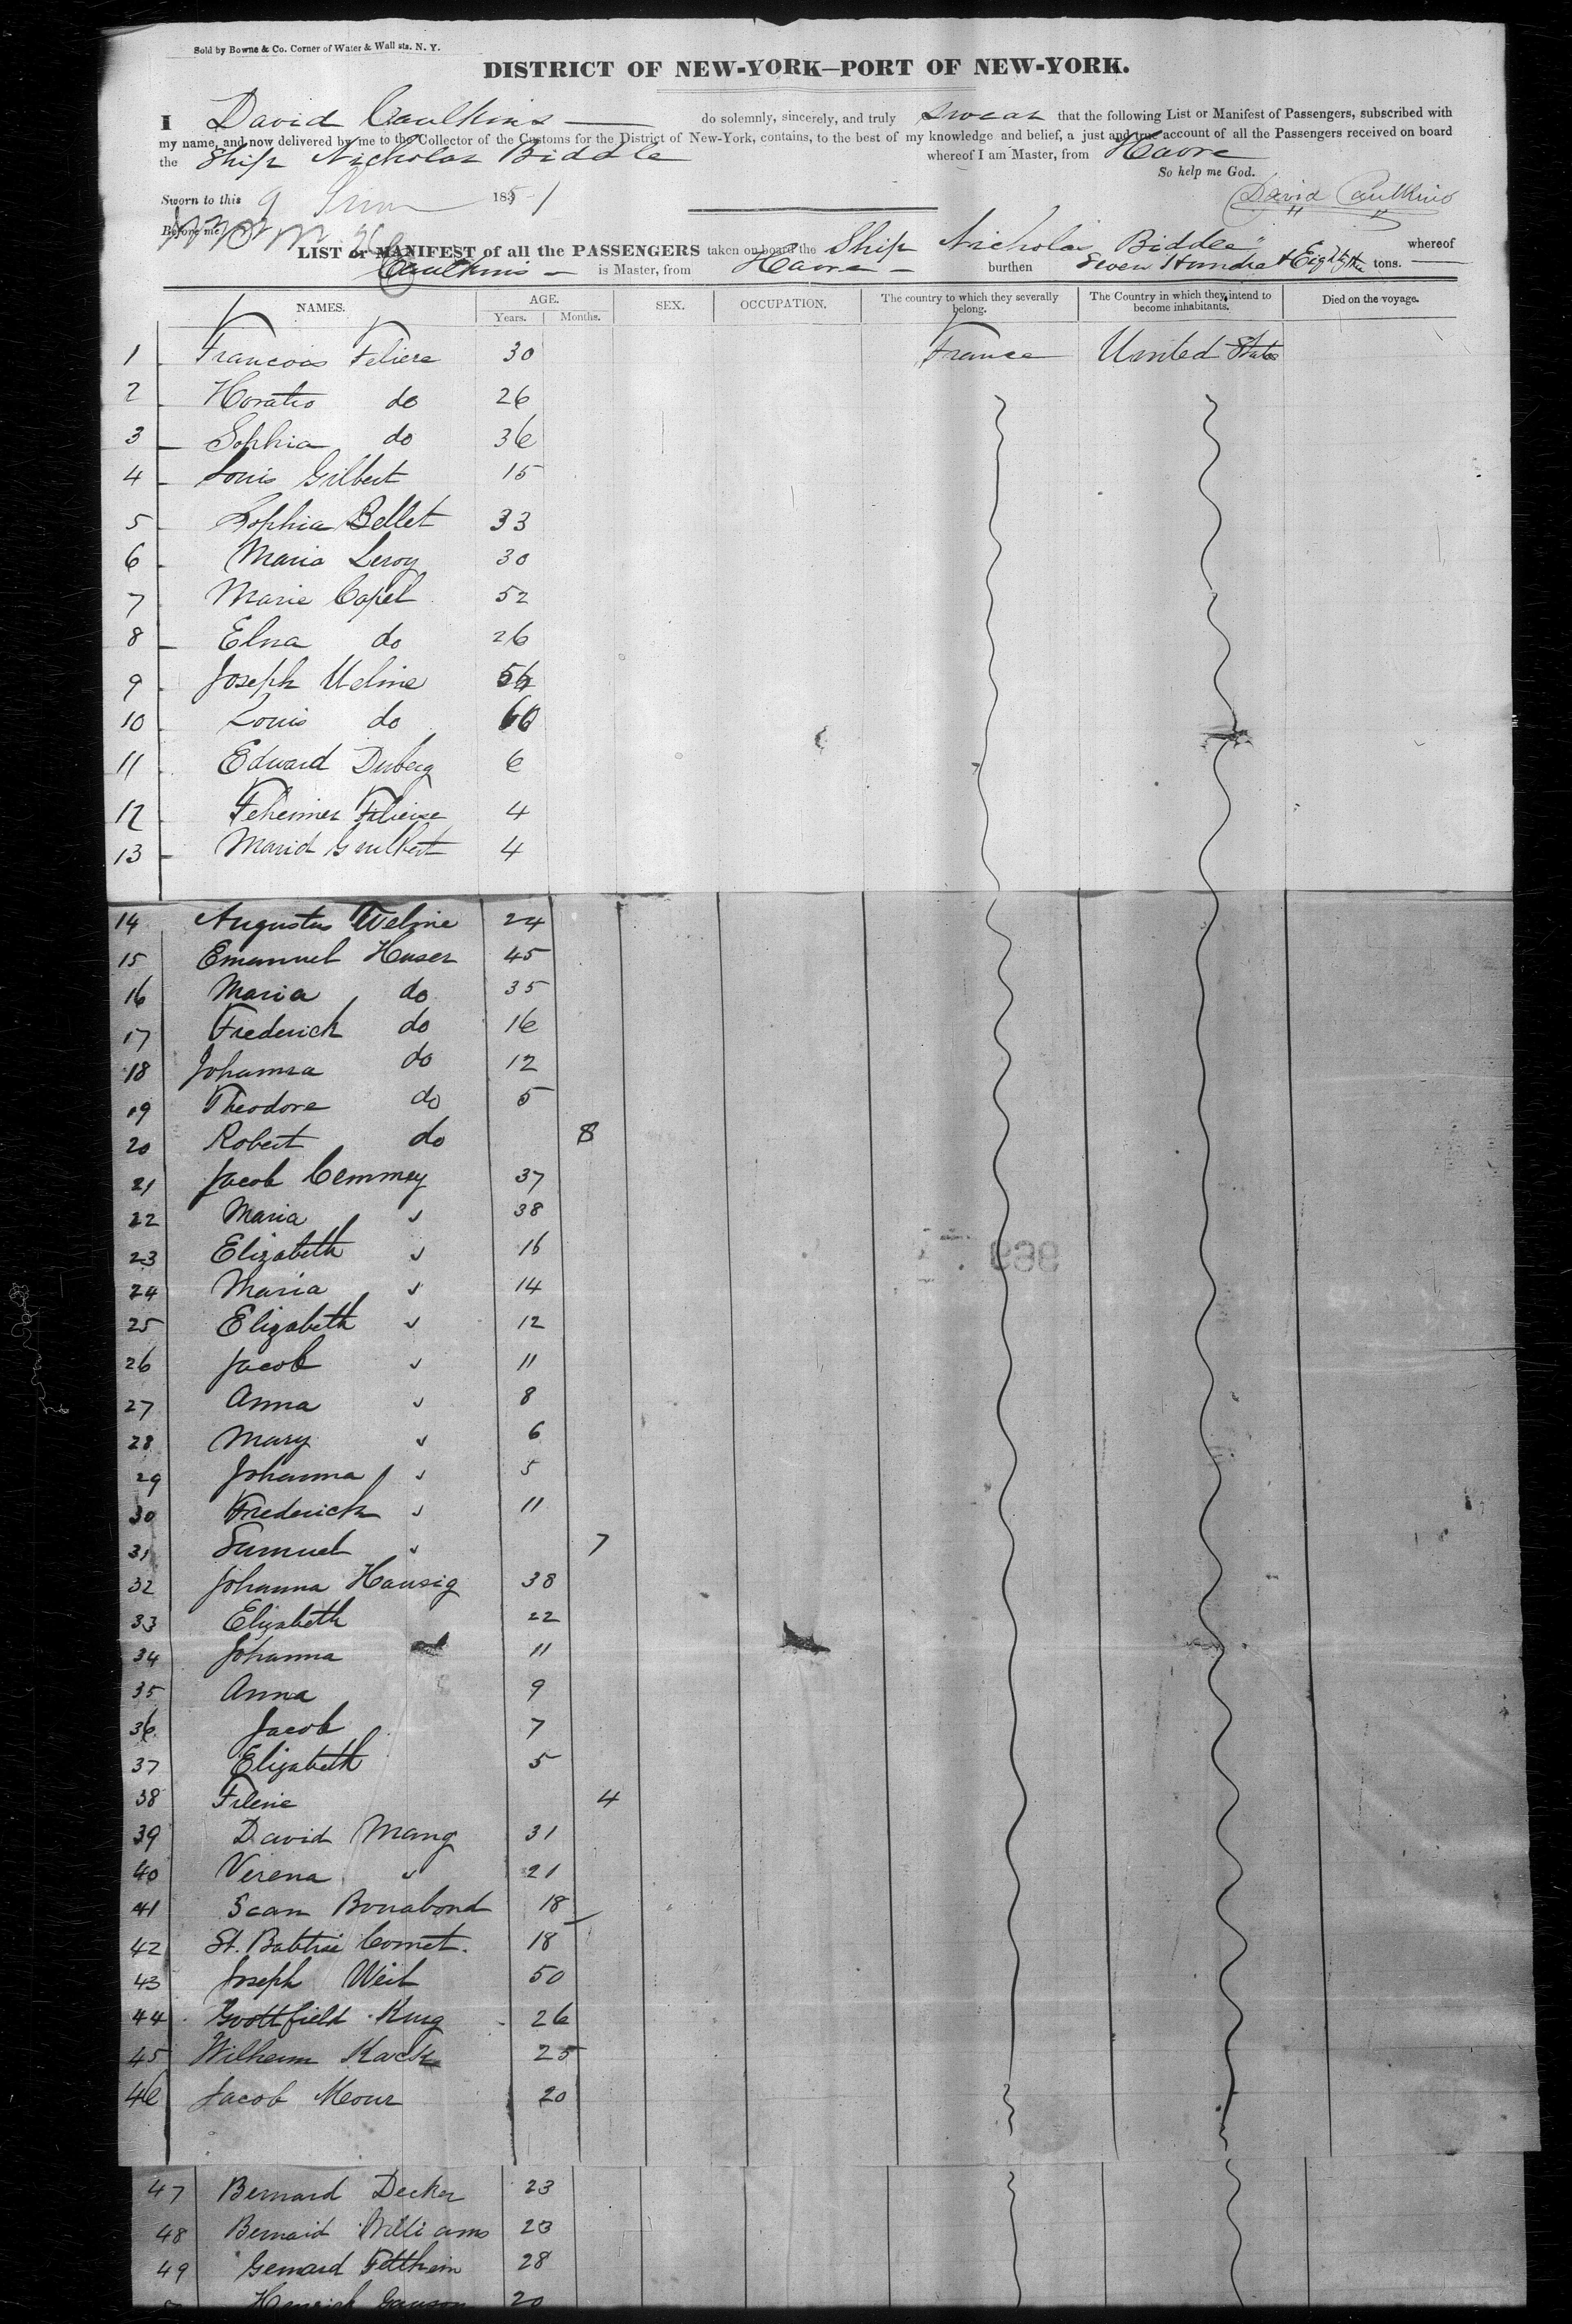 Sold by Bowne & Co. Corner of Water & Wall sts. N. Y.
DISTRICT OF NEW-YORK—PORT OF NEW-YORK.
I David Caulkins do solemnly, sincerely, and truly swear that the following List or Manifest of Passengers, subscribed with
my name, and now delivered by me to the Collector of the Customs for the District of New-York, contains, to the best of my knowledge and belief, a just and true account of all the Passengers received on board
the Ship Nicholas Biddle whereof I am Master, from Havre
So help me God.
Sworn to this 9 June 1851
David Caulkins
Before me
LIST or MANIFEST of all the PASSENGERS taken on board the Ship Nicholas Biddle whereof
Caulkins is Master, from Havre burthen Seven Hundred & Eighty tons.
NAMES. AGE. SEX. OCCUPATION. The country to which they severally belong. The Country in which they intend to become inhabitants. Died on the voyage.
Years. Months.
1 Francois Filiere 30 France United States
2 Horatio do 26
3 Sophia do 36
4 Louis Gilbert 15
5 Sophia Bellet 33
6 Maria Leroy 30
7 Marie Capel 52
8 Elna do 26
9 Joseph Ueline
10 Louis do 60
11 Edward 6
12 4
13 4
14 Augustus Weline 24
15 Emanuel Huser 45
16 Maria do 35
17 Frederick do 16
18 Johanna do 12
19 Theodore do 5
20 Robert do 8
21 Jacob Cemmey 37
22 Maria " 38
23 Elizabeth " 16
24 Maria " 14
25 Elizabeth " 12
26 Jacob " 11
27 Anna " 8
28 Mary " 6
29 Johanna " 5
30 Frederick " 11
31 Samuel " 7
32 Johanna Hausig 38
33 Elizabeth 22
34 Johanna 11
35 Anna 9
36 Jacob 7
37 Elizabeth 5
38 Filene 4
39 David Mang 31
40 Verena " 21
41 Sean Bonabond 18
42 St. Babtise Comet. 18
43 Joseph Weil 50
44 Gottfield King 26
45 Wilhelm Kack 25
46 Jacob Mour 20
47 Bernard Decker 23
48 Bernard Williams 23
49 Gernard Feltheim 28
Henrich 20